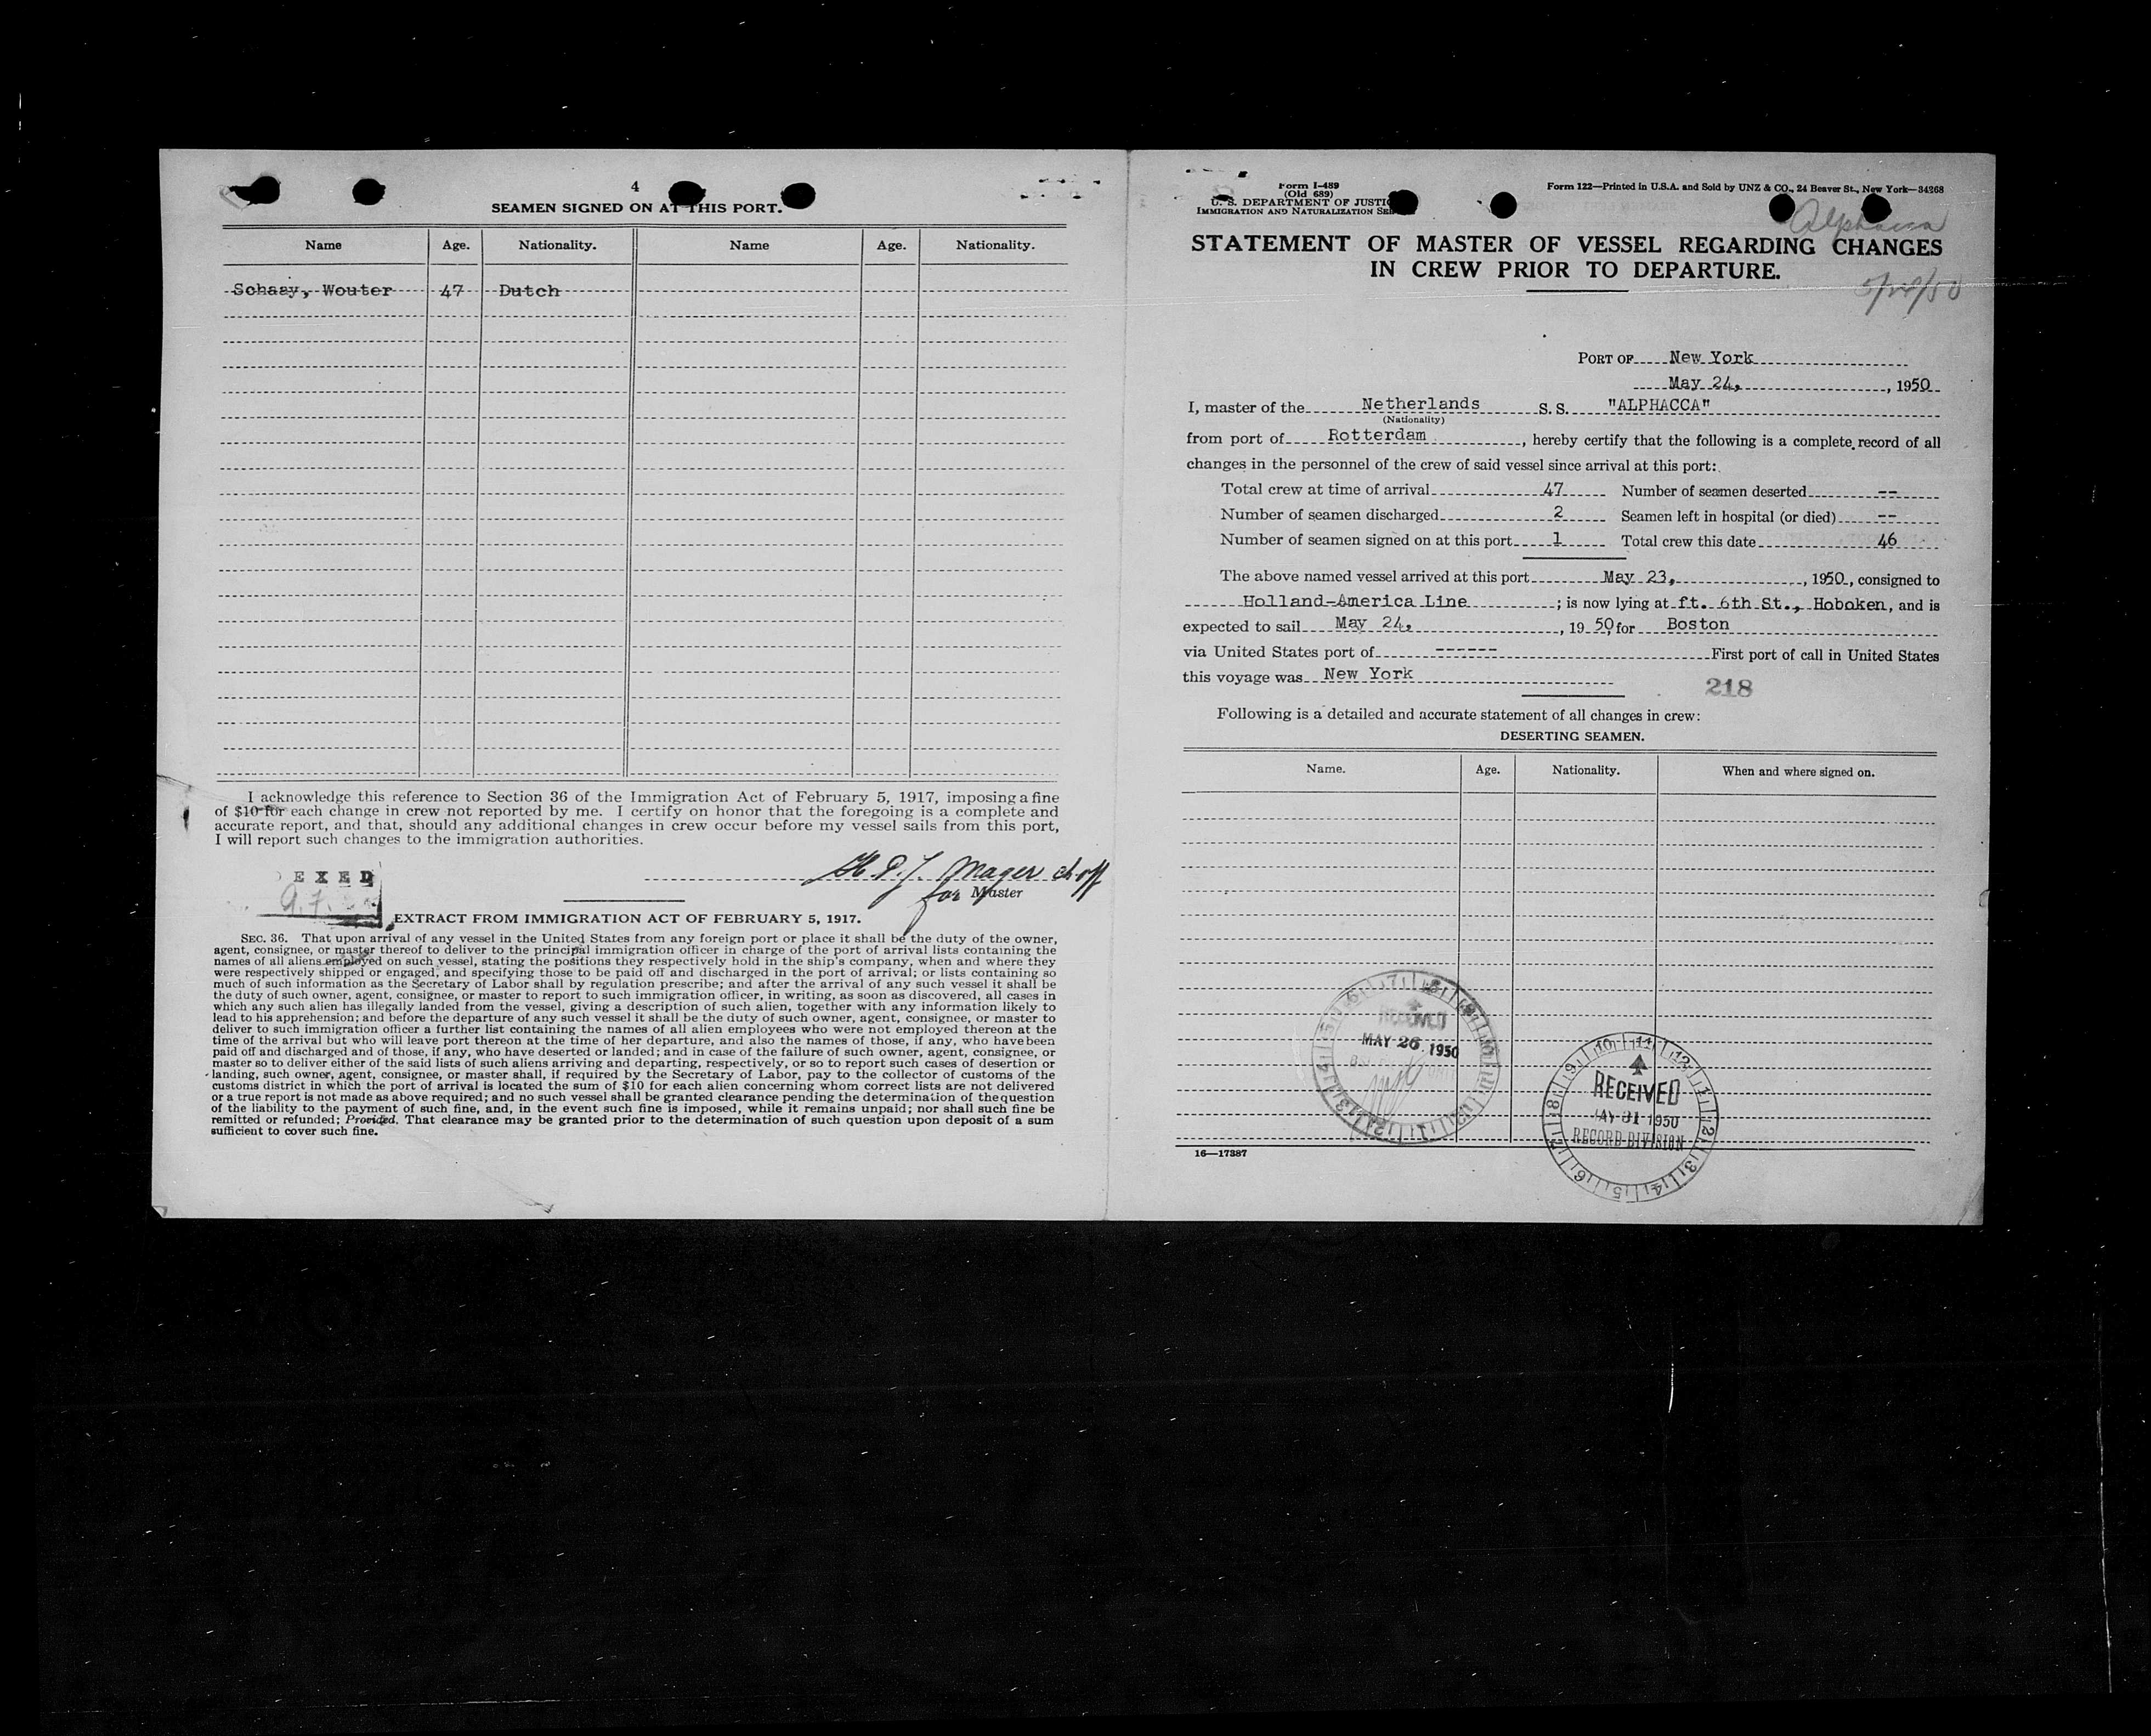 4
SEAMEN SIGNED ON AT THIS PORT.
Name Age. Nationality. Name Age. Nationality.
Schaay, Wouter 47 Dutch
I acknowledge this reference to Section 36 of the Immigration Act of February 5, 1917, imposing a fine
of $10 for each change in crew not reported by me. I certify on honor that the foregoing is a complete and
accurate report, and that, should any additional changes in crew occur before my vessel sails from this port,
I will report such changes to the immigration authorities.
EXED
H.P.J. Mager ch off
for Master
EXTRACT FROM IMMIGRATION ACT OF FEBRUARY 5, 1917.
SEC. 36. That upon arrival of any vessel in the United States from any foreign port or place it shall be the duty of the owner,
agent, consignee, or master thereof to deliver to the principal immigration officer in charge of the port of arrival lists containing the
names of all aliens employed on such vessel, stating the positions they respectively hold in the ship's company, when and where they
were respectively shipped or engaged, and specifying those to be paid off and discharged in the port of arrival; or lists containing so
much of such information as the Secretary of Labor shall by regulation prescribe; and after the arrival of any such vessel it shall be
the duty of such owner, agent, consignee, or master to report to such immigration officer, in writing, as soon as discovered, all cases in
which any such alien has illegally landed from the vessel, giving a description of such alien, together with any information likely to
lead to his apprehension; and before the departure of any such vessel it shall be the duty of such owner, agent, consignee, or master to
deliver to such immigration officer a further list containing the names of all alien employees who were not employed thereon at the
time of the arrival but who will leave port thereon at the time of her departure, and also the names of those, if any, who have been
paid off and discharged and of those, if any, who have deserted or landed; and in case of the failure of such owner, agent, consignee, or
master so to deliver either of the said lists of such aliens arriving and departing, respectively, or so to report such cases of desertion or
landing, such owner, agent, consignee, or master shall, if required by the Secretary of Labor, pay to the collector of customs of the
customs district in which the port of arrival is located the sum of $10 for each alien concerning whom correct lists are not delivered
or a true report is not made as above required; and no such vessel shall be granted clearance pending the determination of the question
of the liability to the payment of such fine, and, in the event such fine is imposed, while it remains unpaid; nor shall such fine be
remitted or refunded; Provided. That clearance may be granted prior to the determination of such question upon deposit of a sum
sufficient to cover such fine.
Form I-489
(Old 689)
U. S. DEPARTMENT OF JUSTIC
IMMIGRATION AND NATURALIZATION SE
Form 122—Printed in U.S.A. and Sold by UNZ & CO., 24 Beaver St., New York—34268
Alphacca
STATEMENT OF MASTER OF VESSEL REGARDING CHANGES
IN CREW PRIOR TO DEPARTURE.
PORT OF New York
May 24, , 1950
I, master of the Netherlands S. S. "ALPHACCA"
(Nationality)
from port of Rotterdam , hereby certify that the following is a complete record of all
changes in the personnel of the crew of said vessel since arrival at this port:
Total crew at time of arrival 47 Number of seamen deserted --
Number of seamen discharged 2 Seamen left in hospital (or died) --
Number of seamen signed on at this port 1 Total crew this date 46
The above named vessel arrived at this port May 23, , 1950, consigned to
Holland-America Line ; is now lying at ft. 6th St., Hoboken, and is
expected to sail May 24, , 19 50, for Boston
via United States port of ------ First port of call in United States
this voyage was New York
218
Following is a detailed and accurate statement of all changes in crew:
DESERTING SEAMEN.
Name. Age. Nationality. When and where signed on.
RECEIVED
MAY 26 1950
RECEIVED
MAY 31 1950
RECORD DIVISION
16—17387